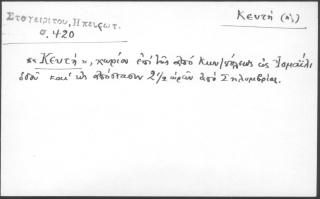 Σταγειρίτου, Ηπειρωτ.
σ. 420
Κευτή (ἡ)
" Κευτή ", χωρίον ἐπὶ τῆς ἀπὸ Κων/πόλεως εἰς Ἰσμαΐλι
ὁδοῦ καὶ εἰς ἀπόστασιν 2 1/2 ὡρῶν ἀπὸ Σηλυμβρίας.